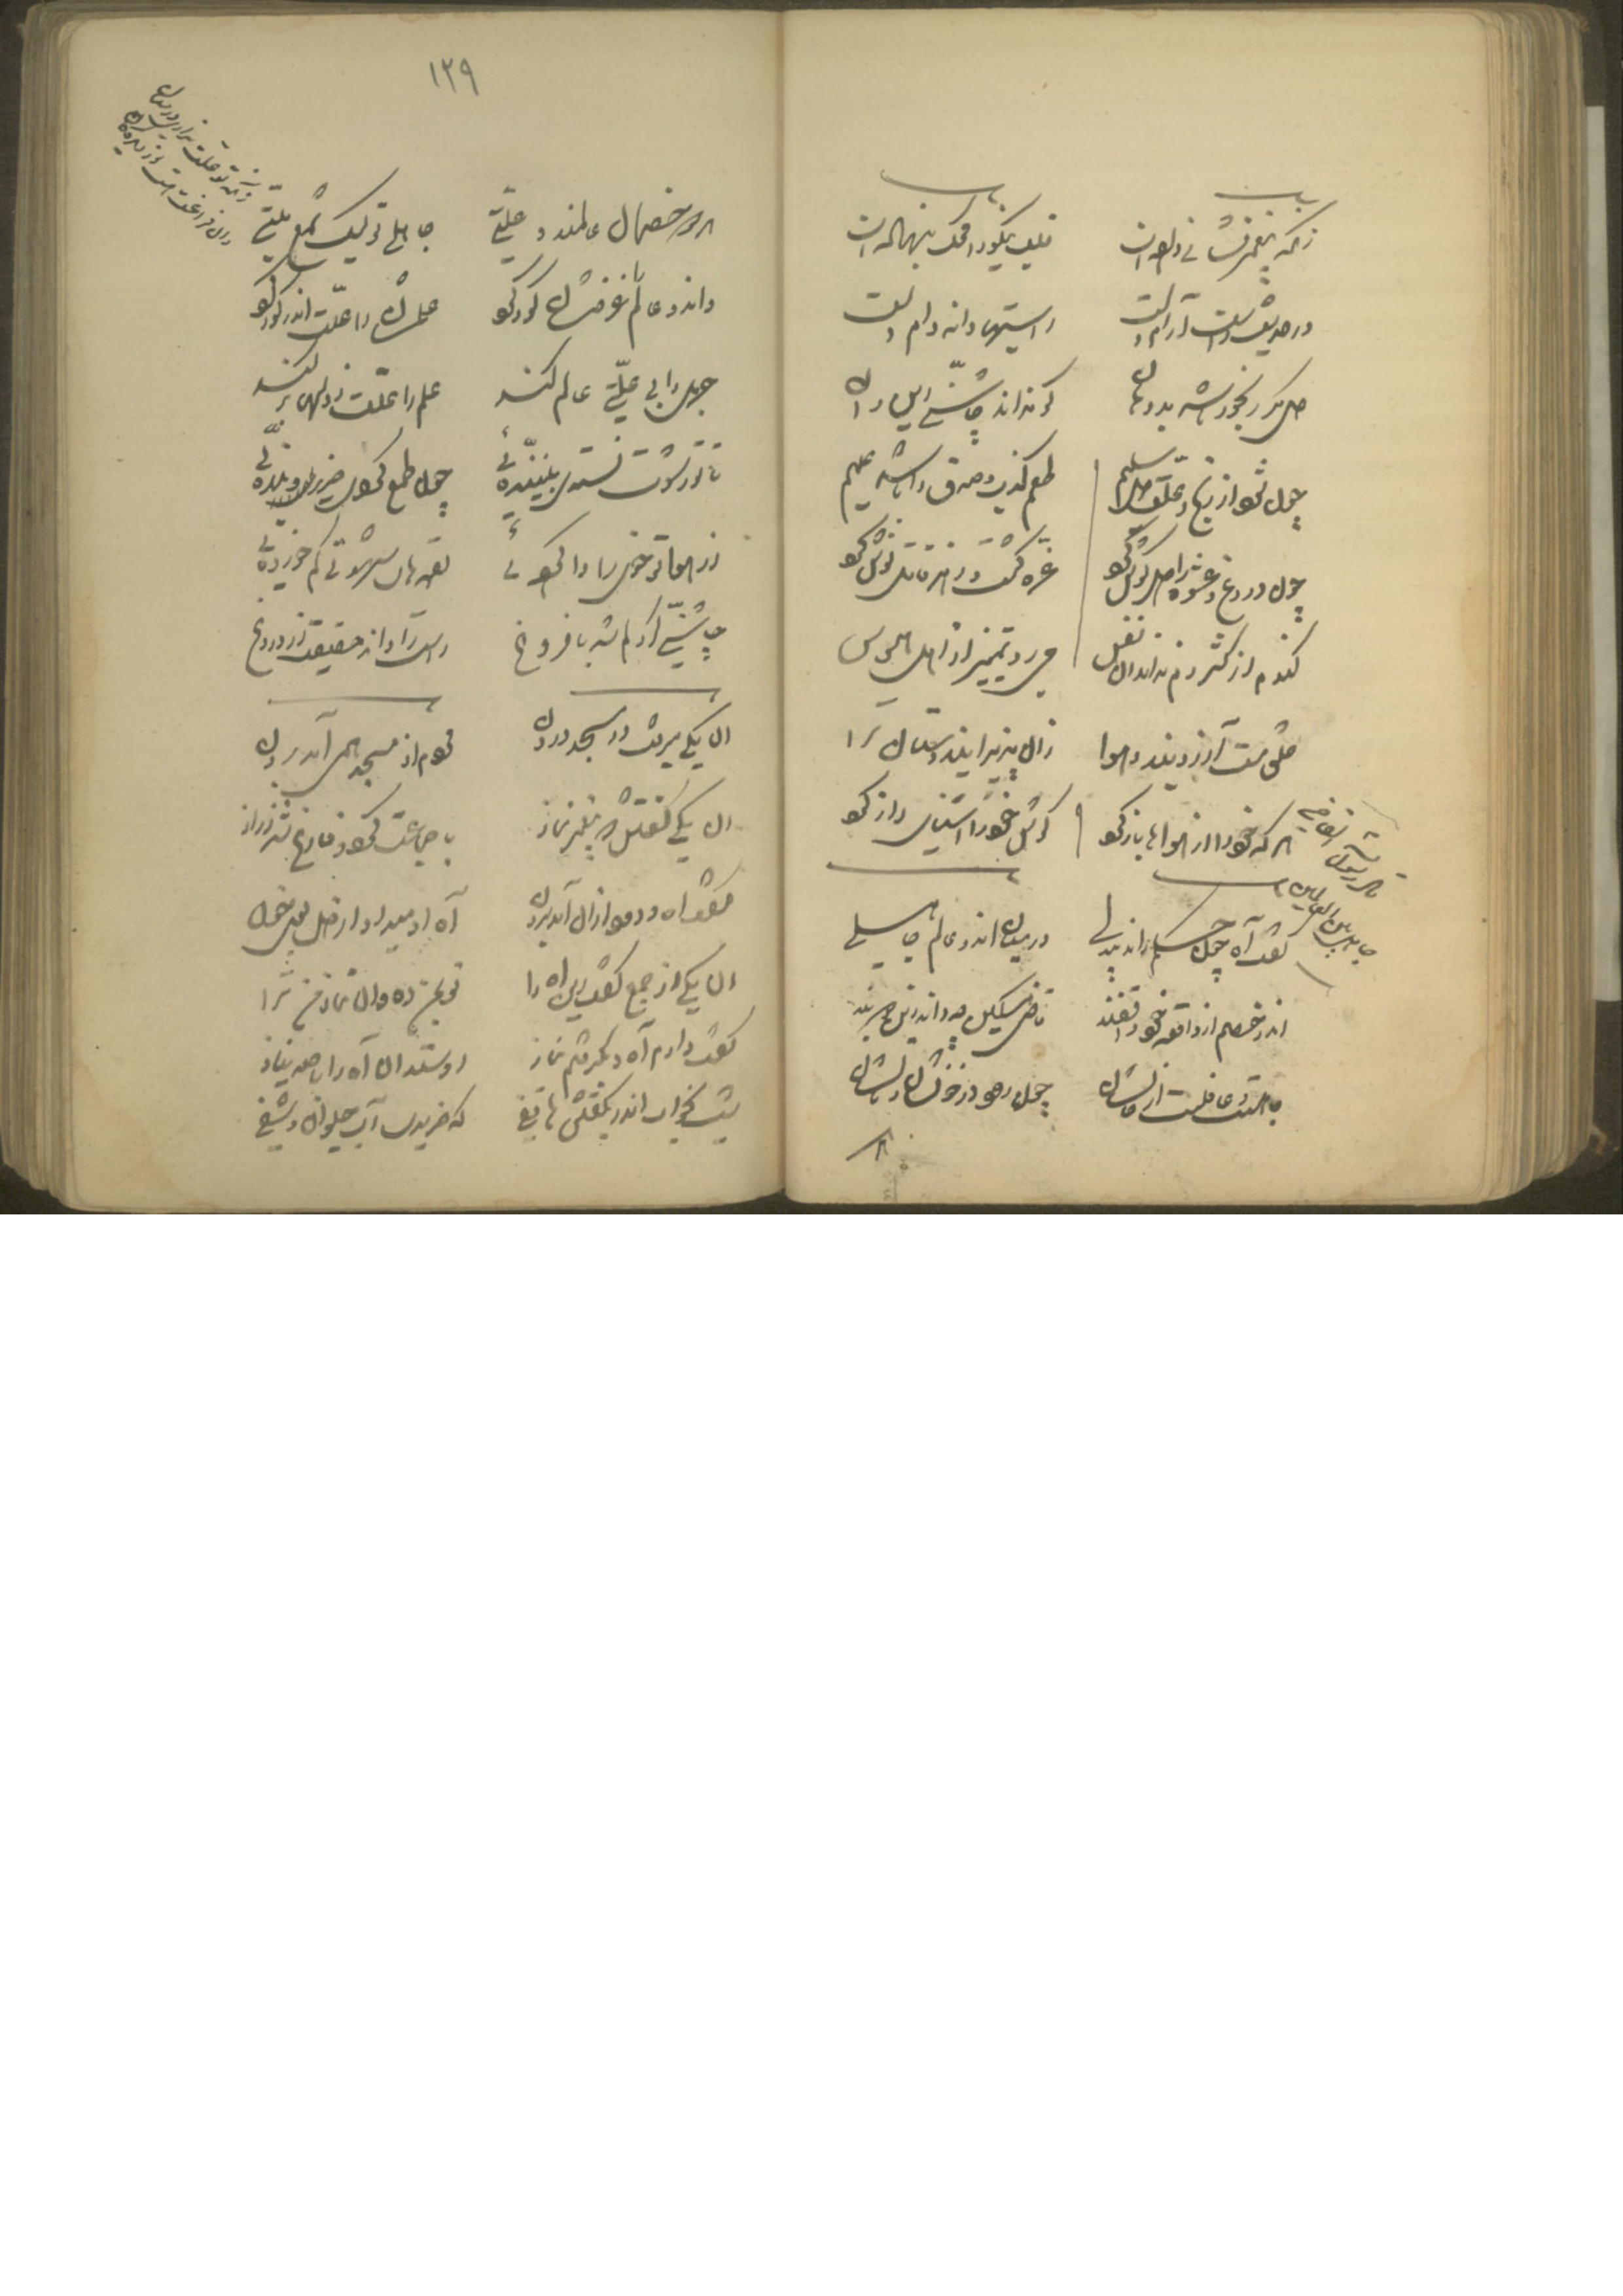 زانکه پیغمبر نشانی داده است قلب نیکو را محک بنهاده است
در حدیث راست آرام دلست راستیها دانه دام دلست
دل مگر رنجور باشد بد دهان کو نداند چاشنی این و آن
چون شود از رنج و علت دل سلیم طعم کذب و صدق را باشد علیم
چون دروغ و عشوه را گوش کرد غره گشت و زهر قاتل نوش کرد
گندم از کژدم نداند آن نفس می رود تمییز از اهل هوس
خلق مست آرزویند و هوا زان پذیرایند دستان ترا
هر که خود را از هواها باز کرد گوش خود را آشنای راز کرد
گفت آه چون حکم راند بیدلی در میان آن دو عالم جاهلی
آن دو خصم از واقعه خود واقفند قاضی مسکین چه داند زان دو بند
جاهلست و غافلست از حالشان چون رود در خونشان و مالشان
۱۲۹
زانکه تو علت نداری در میان
آن فراغت هست نور دیدگان
هر دو خصمان عالمند و علتی جاهلی تو لیک شمع ملتی
وان دو عالم را غرضشان کور کرد علمشان را علت اندر گور کرد
جهل را بی علتی عالم کند علم را علت ز دلها بر کند
تا تو رشوت نستدی بیننده ئی چون طمع کردی ضریر و بنده ئی
از هوا تو خوی را وا کرده ئی لقمه های شهوتی کم خورده ئی
چاشنی گیر دلم شد با فروغ راست را داند حقیقت از دروغ
آن یکی میرفت در مسجد درون قوم از مسجد همی آمد برون
آن یکی گفتش که پیغمبر نماز با جماعت کرد و فارغ شد ز راز
گفت آه و دود از آن آمد برون آه او میداد از دل بوی خون
آن یکی از جمع گفت این آه را تو بمن ده وان نماز من ترا
گفت دادم آه و پذرفتم نماز او ستد آن آه را با صد نیاز
شب بخواب اندر بگفتش هاتفی که خریدی آب حیوان و شفی